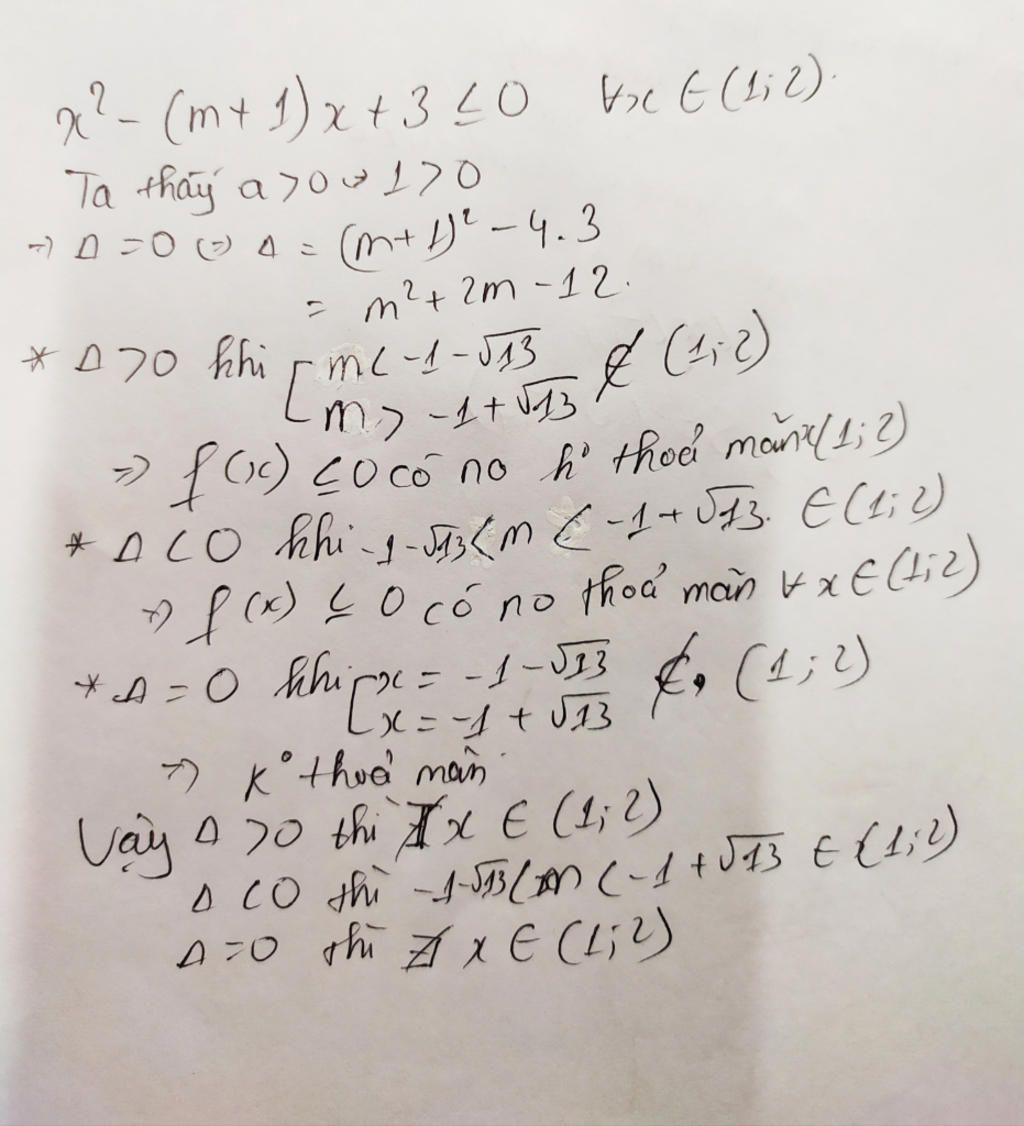 x² - (m+1)x + 3 ≤ 0 ∀x ∈ (1;2).
Ta thấy a > 0 ⇔ 1 > 0
⇒ Δ = 0 ⇔ Δ = (m+1)² - 4.3
= m² + 2m - 12.
* Δ > 0 khi [ m < -1 - √13 ∉ (1;2)
m > -1 + √13
⇒ f(x) ≤ 0 có no k° thoả mãn x(1;2)
* Δ < 0 khi -1-√13 < m < -1 + √13. ∈ (1;2)
⇒ f(x) ≤ 0 có no thoả mãn ∀ x ∈ (1;2)
* Δ = 0 khi [ x = -1 - √13 ∉, (1;2)
x = -1 + √13
⇒ K° thoả mãn
Vậy Δ > 0 thì ∄ x ∈ (1;2)
Δ < 0 thì -1-√13 < m < -1 + √13 ∈ (1;2)
Δ = 0 thì ∄ x ∈ (1;2)